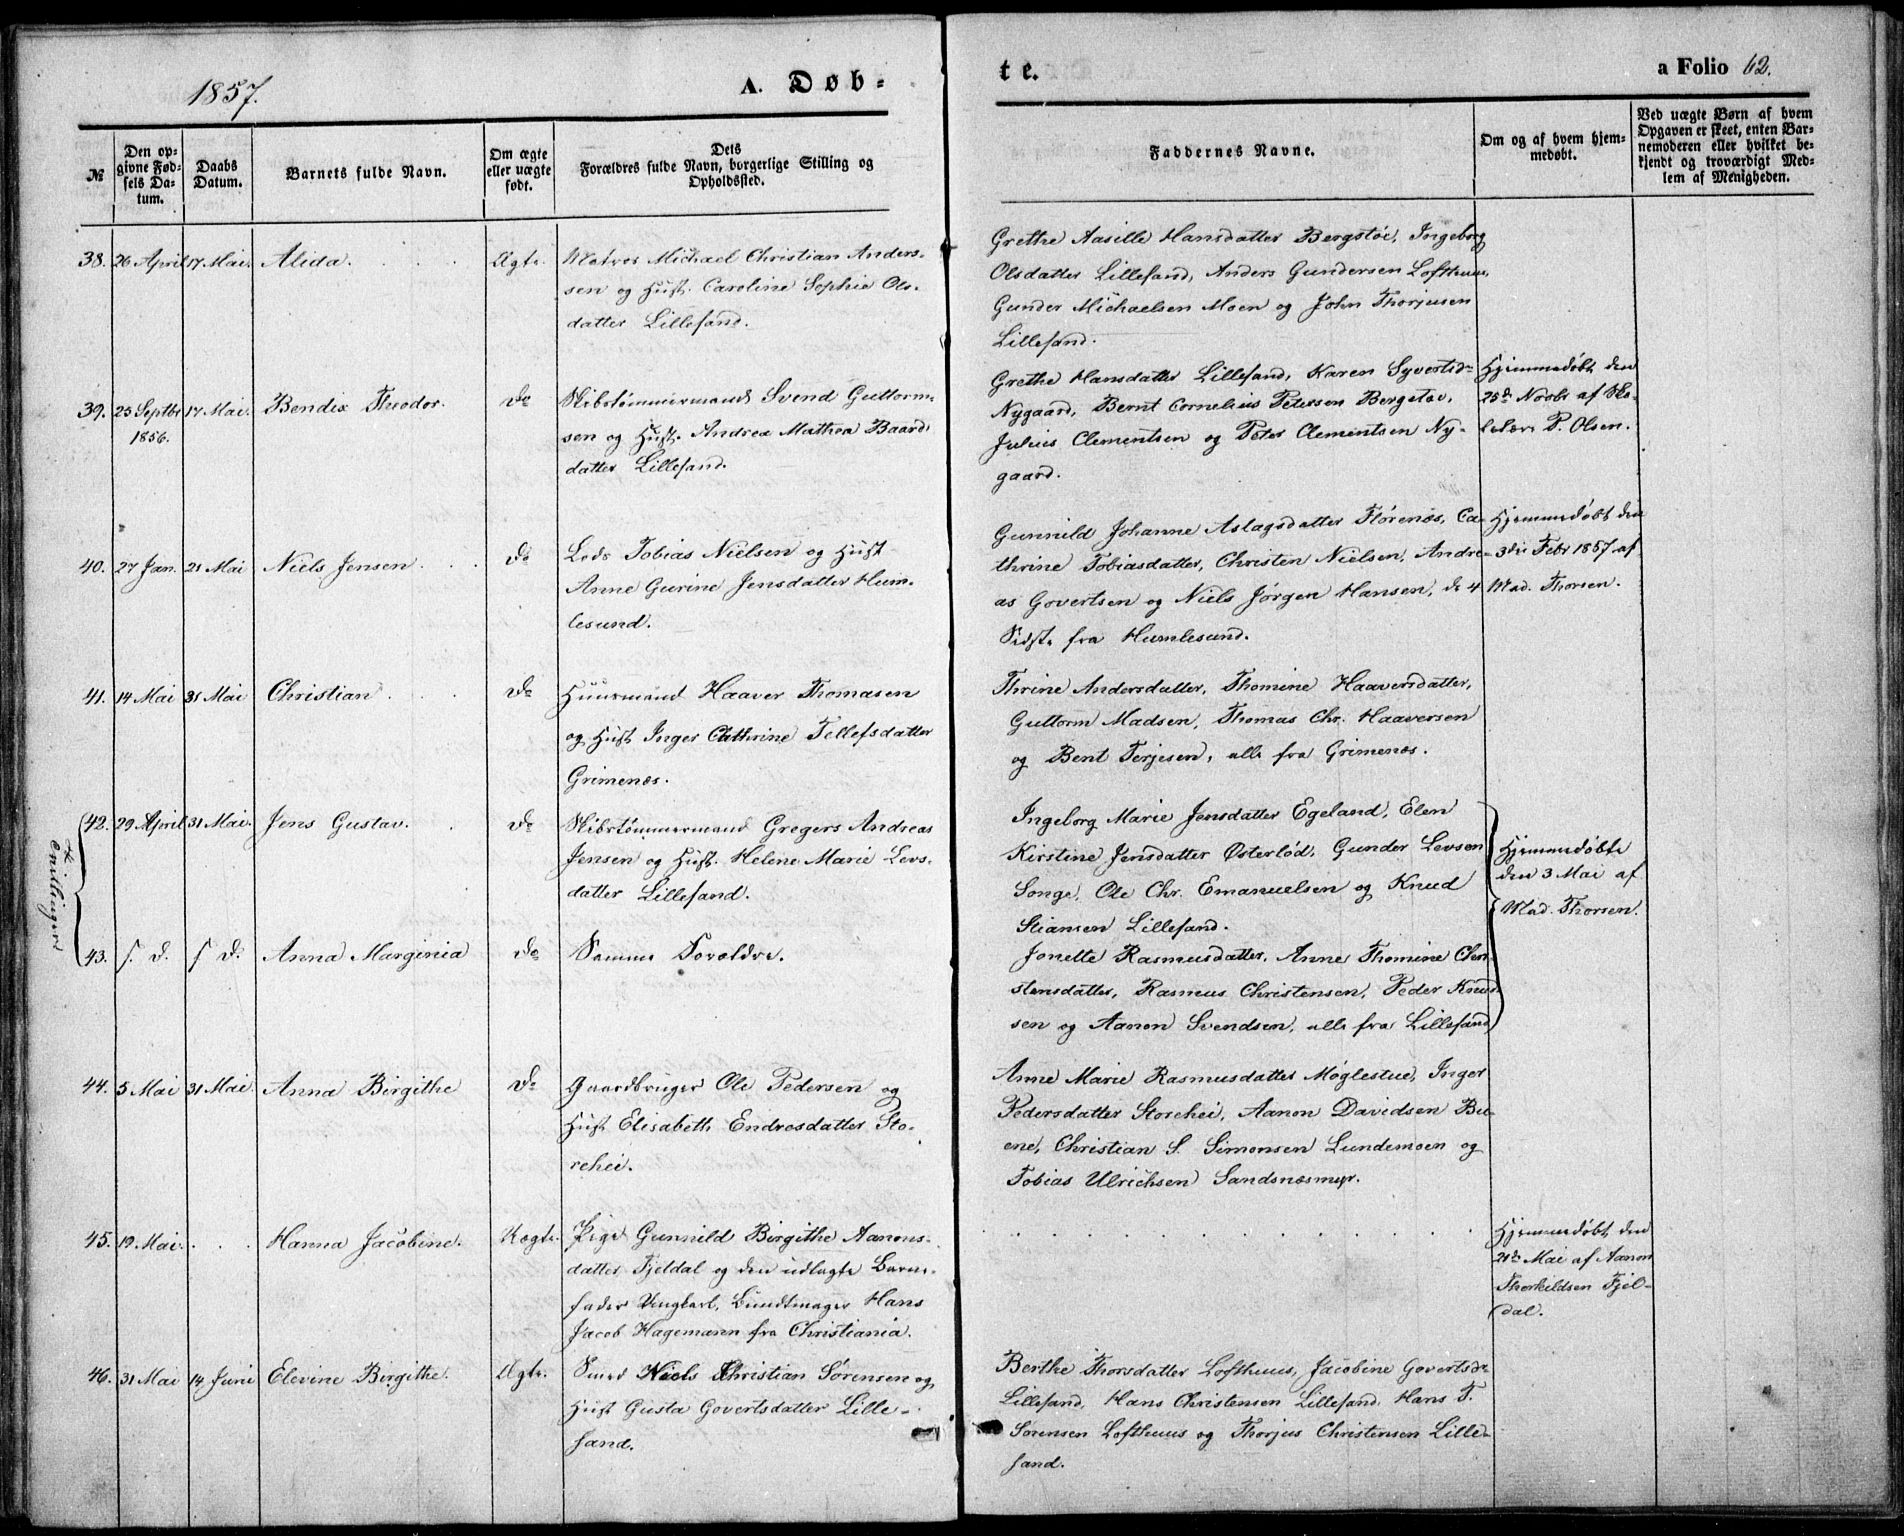 1857.
A. Døb-
te.
a Folio 62.
№
Den op-
givne Fød-
sels Da-
tum.
Daabs
Datum.
Barnets fulde Navn.
Om ægte
eller uægte
født.
Dets
Forældres fulde Navn, borgerlige Stilling og
Opholdssted.
Faddernes Navne.
Om og af hvem hjem-
medøbt.
Ved uægte Børn af hvem
Opgaven er skeet, enten Bar-
nemoderen eller hvilket be-
kjendt og troværdigt Med-
lem af Menigheden.
38. 26 April 17 Mai. Alida. Ægte.
Matros Michael Christian Anders-
sen og Hust. Caroline Sophie Ols-
datter Lillesand.
Grethe Aasille Hansdatter Bergstøe, Ingeborg
Olsdatter Lillesand, Anders Gundersen Lofthuus,
Gunder Michaelsen Moen og John Thorjusen
Lillesand.
39. 25 Septbr 1856. 17 Mai. Bendix Theodor. Do
Skibstømmermand Svend Guttorm-
sen og Hust. Andrea Mathea Baards-
datter Lillesand.
Grethe Hansdatter Lillesand, Karen Syvertsdr
Nygaard, Bernt Cornelius Petersen Bergstøe,
Julius Clementsen og Peter Clementsen Ny-
gaard.
Hjemmedøbt den
25de Novbr af Sko-
lelær. P. Olsen.
40. 27 Jan. 21 Mai Niels Jensen. Do
Lods Tobias Nielsen og Hust
Anne Gurine Jensdatter Hum-
lesund.
Gunnild Johanne Aslagsdatter Flørenæs, Ca-
thrine Tobiasdatter, Christen Nielsen, Andre-
as Govertsen og Niels Jørgen Hansen, de 4
Sidste fra Humlesund.
Hjemmedøbt den
3die Febr 1857 af
Mad. Thorsen.
41. 14 Mai 31 Mai Christian. Do
Huusmand Haaver Thomasen
og Hust Inger Cathrine Tellefsdatter
Grimenæs.
Thrine Andersdatter, Thomine Haaversdatter,
Guttorm Madsen, Thomas Chr. Haaversen
og Bent Terjesen, alle fra Grimenæs.
Tvillinger
42. 29 April 31 Mai. Jens Gustav. Do
Skibstømmermand Gregers Andreas
Jensen og Hust. Helene Marie Levs-
datter Lillesand.
Ingeborg Marie Jensdatter Egeland, Elen
Kirstine Jensdatter Østerlød, Gunder Levsen
Songe, Ole Chr. Emanuelsen og Knud
Stiansen Lillesand.
Hjemmedøbte
den 3 Mai af
Mad. Thorsen.
43. s. d. s d. Anna Marginia Do
Samme Forældre.
Jonette Rasmusdatter, Anne Thomine Chri-
stensdatter, Rasmus Christensen, Peder Knud-
sen og Aanon Svendsen, alle fra Lillesand.
44. 5 Mai 31 Mai. Anna Birgithe Do
Gaardbruger Ole Pedersen og
Hust Elisabeth Endresdatter Sto-
rehei.
Anne Marie Rasmusdatter Møglestue, Inger
Pedersdatter Storehei, Aanon Davidsen Bu-
ene, Christian S. Simonsen Lundemoen og
Tobias Ulrichsen Sandsnæsmyr.
45. 19 Mai. Hanna Jacobine. Uægte.
Pige Gunnild Birgithe Aanons-
datter Fjeldal og den udlagte Barne-
fader Ungkarl, Bundtmager Hans
Jacob Hagemann fra Christiania.
Hjemmedøbt den
21de Mai af Aanon
Thorkildsen Fjel-
dal.
46. 31 Mai 14 Juni Elevine Birgithe. Ægte.
Smed Niels Christian Sørensen og
Hust Gusta Govertsdatter Lille-
sand.
Berthe Thorsdatter Lofthuus, Jacobine Govertsdr
Lillesand, Hans Christensen Lillesand, Hans T.
Sørensen Lofthuus og Thorjus Christensen Lille-
sand.